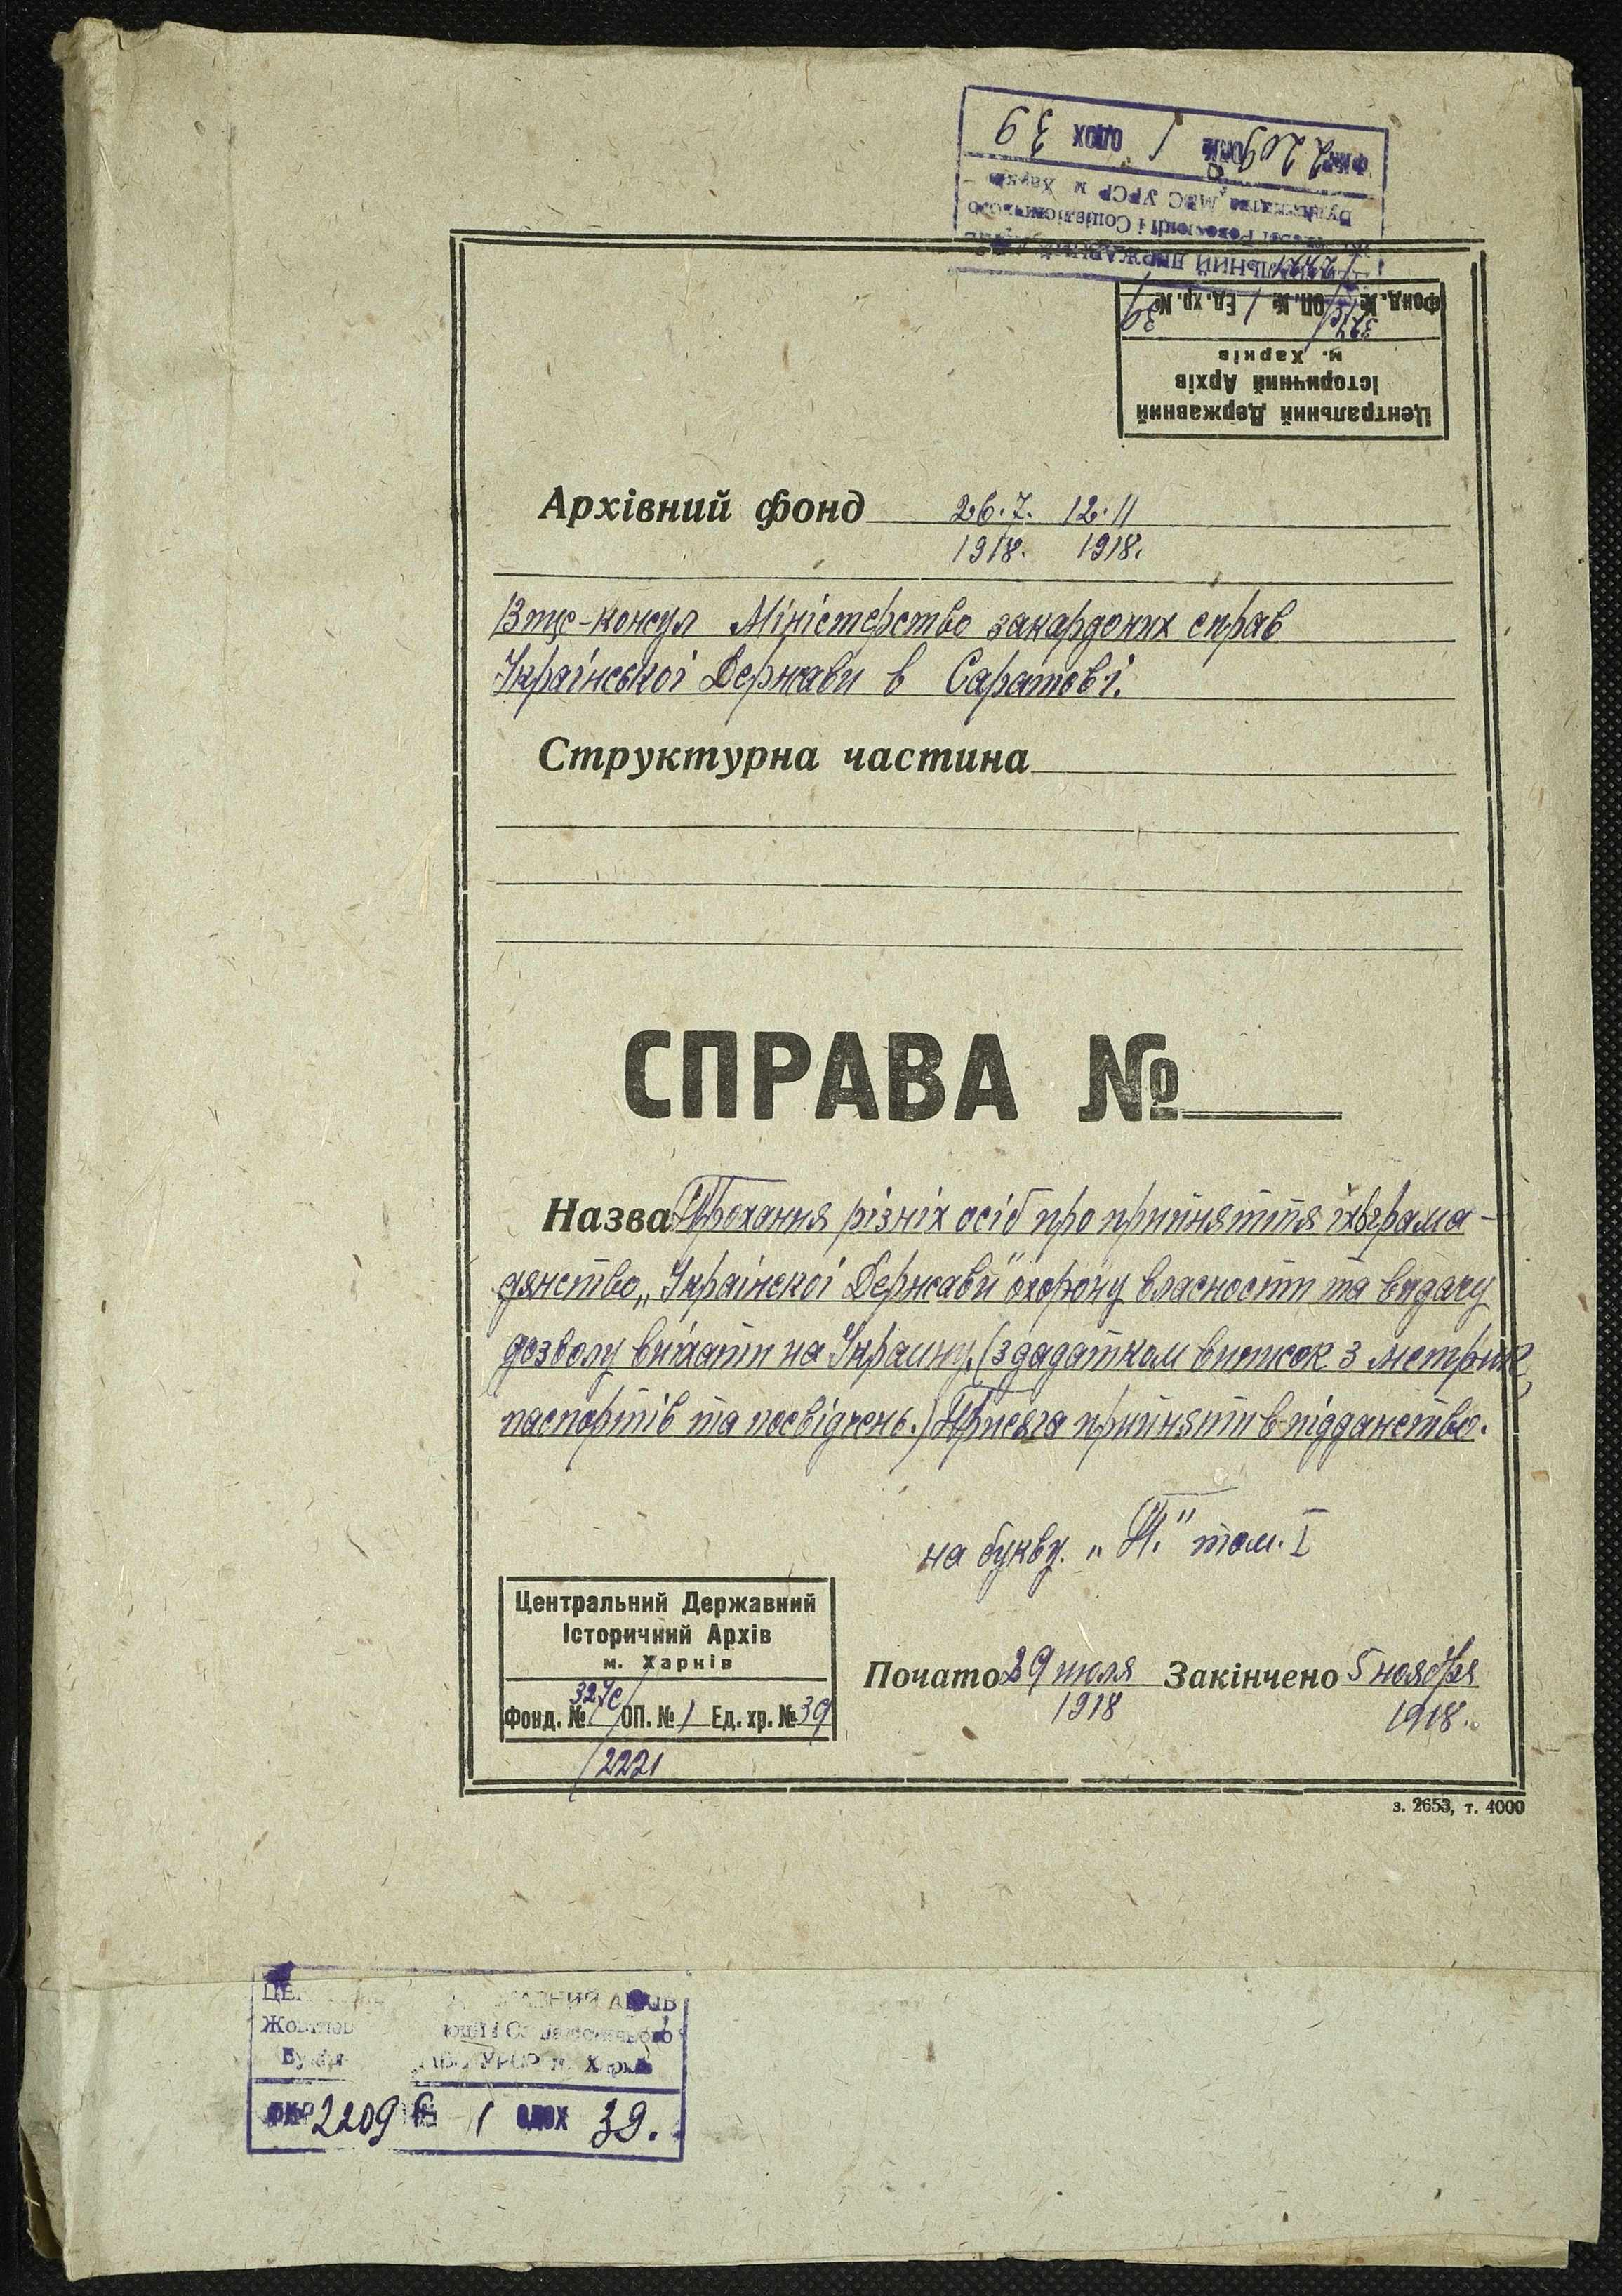 ЦЕНТРАЛЬНИЙ ДЕРЖАВНИЙ АРХІВ
Жовтневої Революції і Соціалістичного
Будівництва МВС УРСР м. Харків
ФКР 2209 ОПИС 1 ОДОХ 39
Центральний Державний
Історичний Архів
м. Харків
Фонд. № ОП. № 1 Ед. хр. № 39
Архівний фонд 26.7. 12.11
1918. 1918.
Віце-консул Міністерство закардоних справ
Української Держави в Саратові.
Структурна частина
СПРАВА №
Назва Прохання різніх осіб про прийняття їх в грама-
дянство „Української Держави" охорону власности та видачу
дозволу виїхати на Украину, (з дадатком виписок з метрик,
паспортів та посвідчень.) Присяга прийняти в підданство.
на букву „П." том. I
Центральний Державний
Історичний Архів
м. Харків
Фонд. № 327с/ ОП. № 1 Ед. хр. № 39
/2221
Почато 29 июля Закінчено 5 ноября
1918 1918.
з. 2653, т. 4000
ДЕРЖАВНИЙ АРХІВ
УРСР м. Харків
ФКР 2209 1 ОДОХ 39.